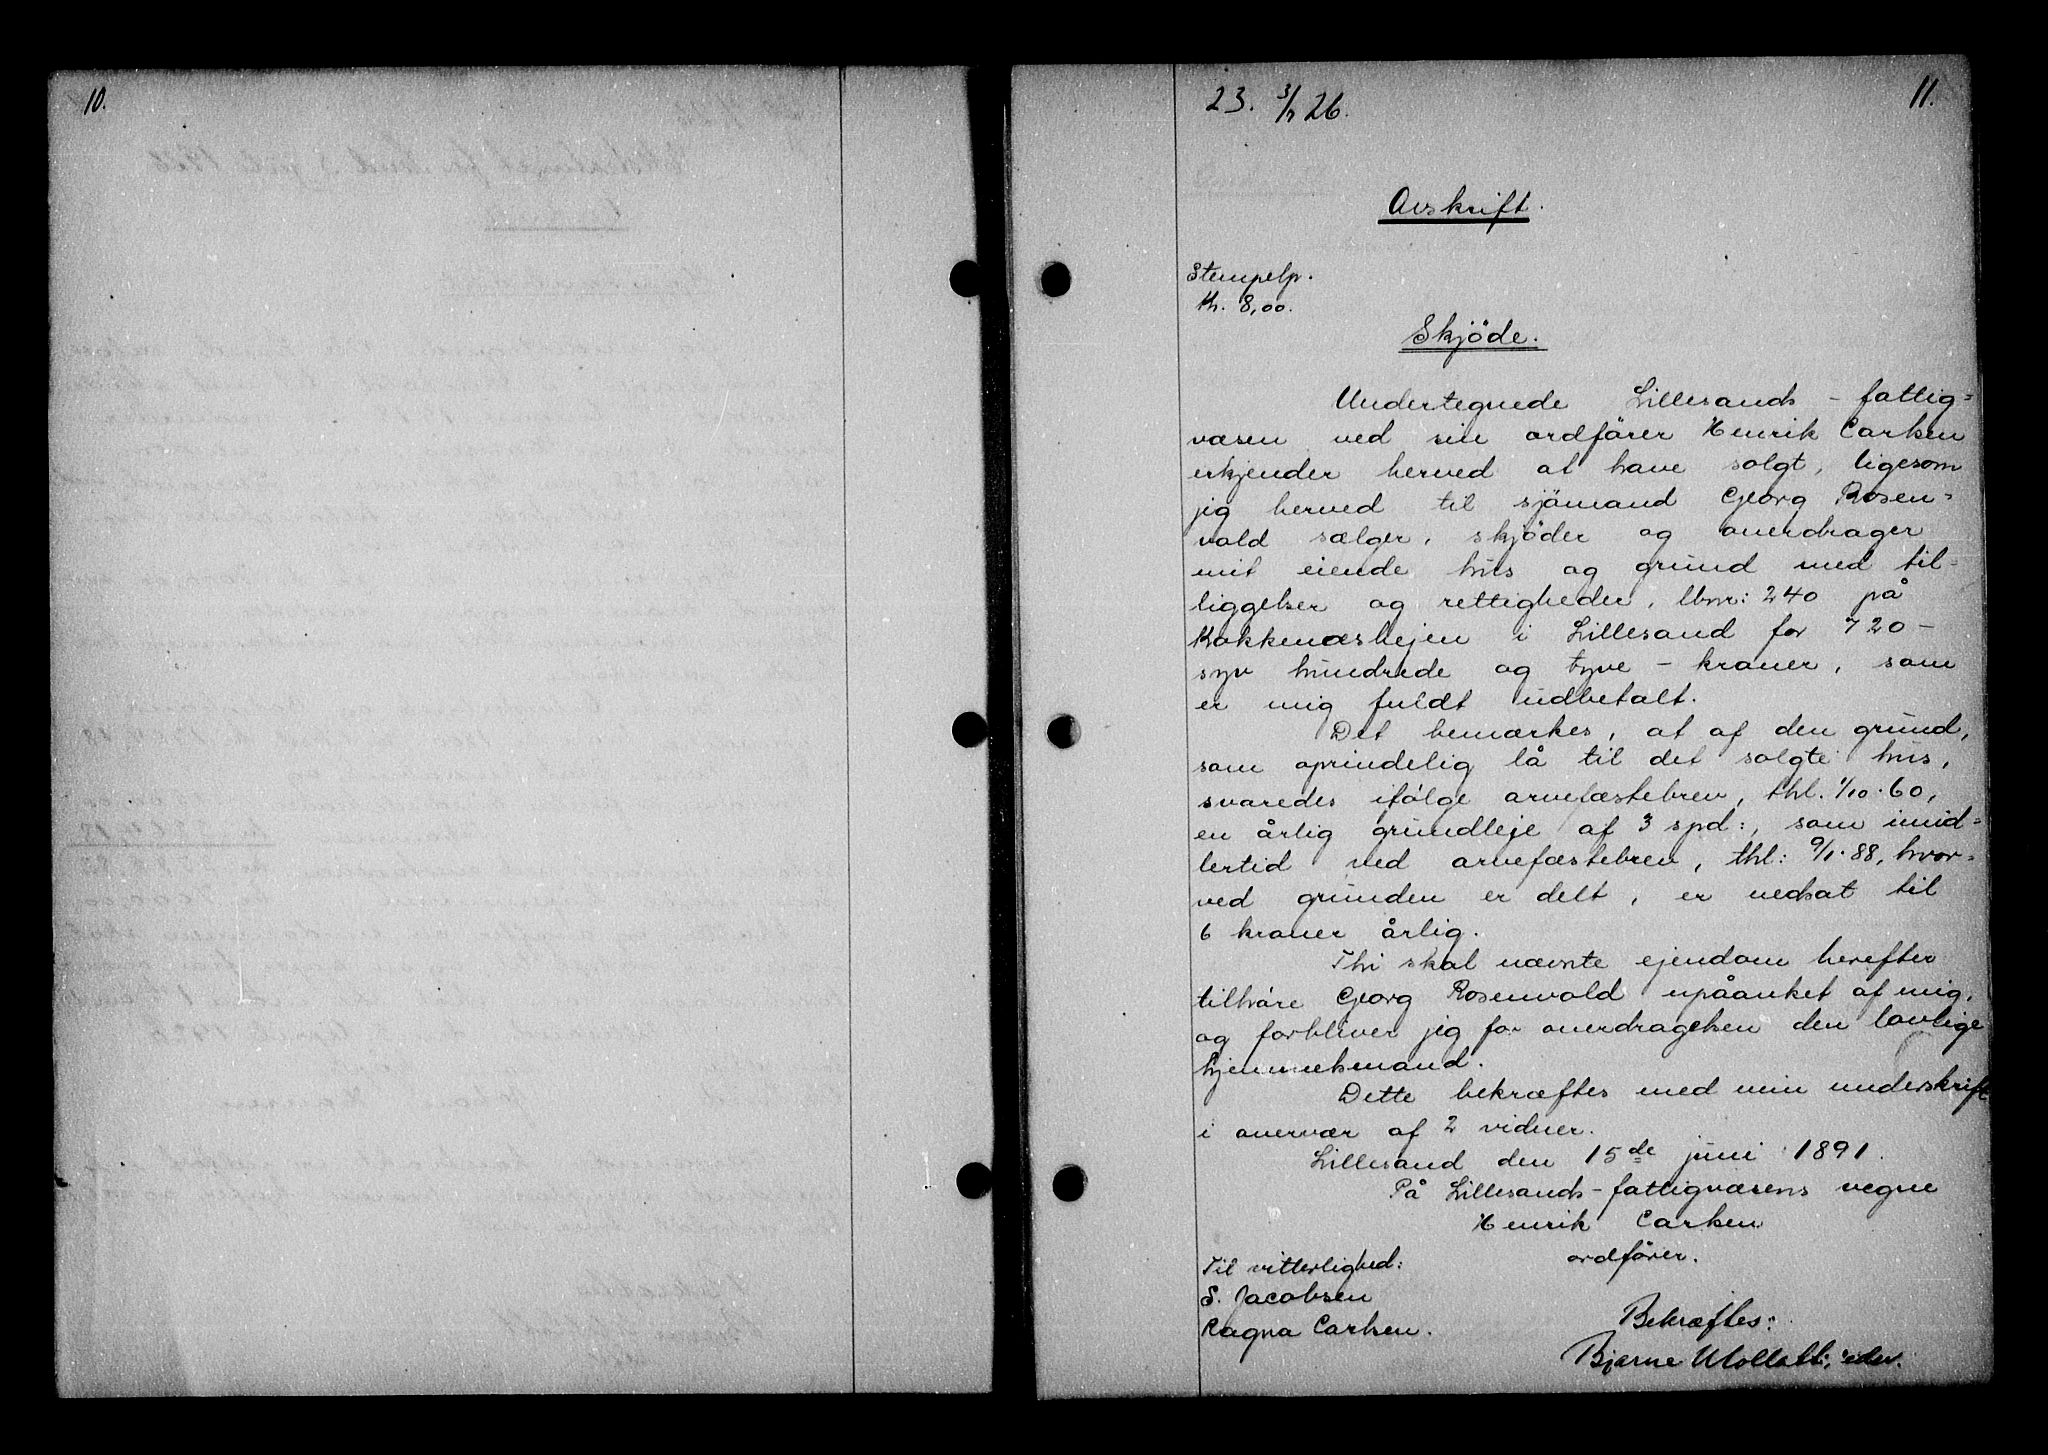 10.
11.
23. 3/7 26.
Avskrift.
Stempelp.
Kr. 8,00.
Skjöde.
Undertegnede Lillesands-fattig=
væsen ved sin ordförer Henrik Carlsen
erkjender herved at have solgt, ligesom
jeg herved til sjömand Georg Rosen=
vold sælger, skjöder og overdrager
mit eiende hus og grund med til=
liggelser og rettigheder, lbnr: 240 på
Kokkenæsheien i Lillesand for 720-
syv hundrede og tyve - kroner, som
er mig fuldt udbetalt.
Det bemærkes, at af den grund,
som oprindelig lå til det solgte hus,
svaredes ifölge arvefæstebrev, thl. 1/10.60,
en årlig grundleje af 3 spd:, som imid=
lertid ved arvefæstebrev, thl: 9/1.88, hvor=
ved grunden er delt, er nedsat til
6 kroner årlig.
Thi skal nævnte ejendom herefter
tilhöre Georg Rosenvold upåanket af mig,
og forbliver jeg for overdragelsen den lovlige
hjemmelsmand.
Dette bekræftes med min underskrift
i overvær af 2 vidner.
Lillesand den 15de juni 1891.
På Lillesands-fattigvæsens vegne
Henrik Carlsen
ordförer.
Til vitterlighed:
S. Jacobsen
Ragna Carlsen.
Bekræftes:
Bjarne Mollatt,